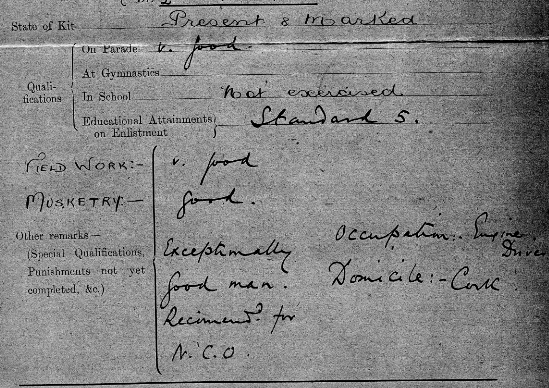 State of Kit Present & Marked
On Parade v. good.
At Gymnastics
Quali-
fications
In School Not exercised
Educational Attainments
on Enlistment Standard 5.
FIELD WORK:- v. good
MUSKETRY:- good.
Other remarks—
(Special Qualifications,
Punishments not yet
completed, &c.)
Exceptionally
good man.
Recimend? for
N.C.O.
Occupation:- Engine
Driver
Domicile:- Cork